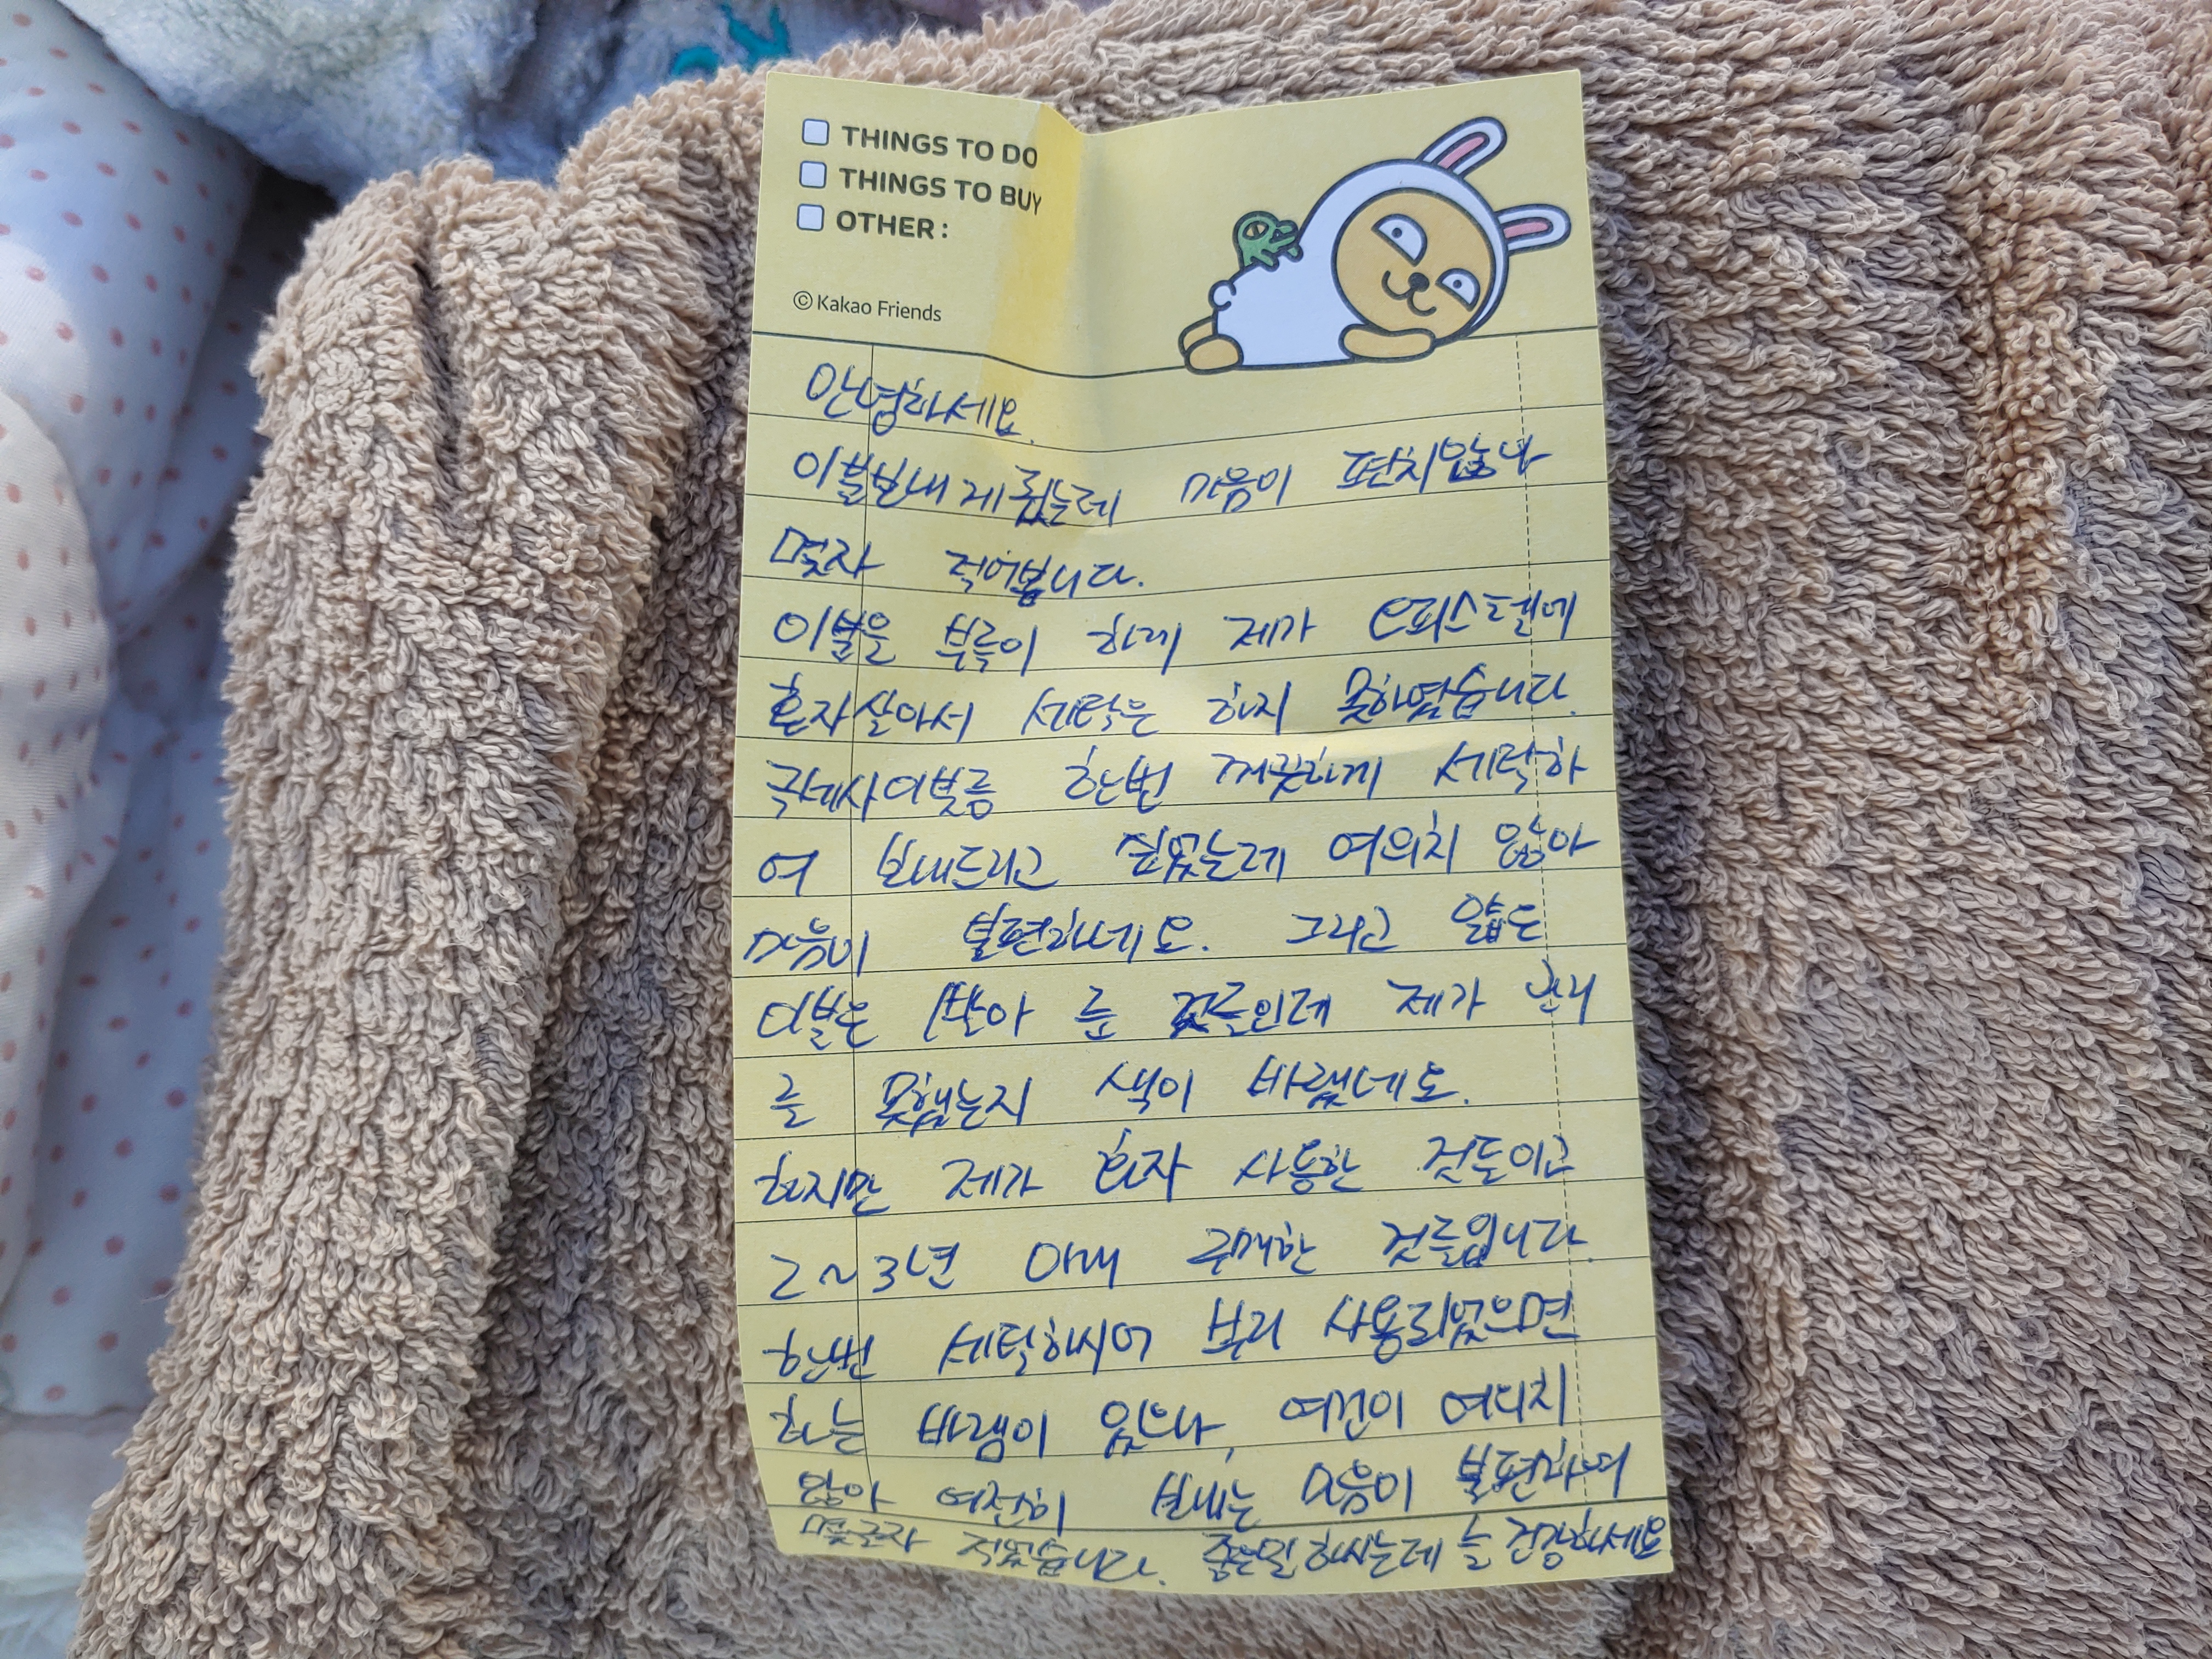 THINGS TO DO
THINGS TO BUY
OTHER:
© Kakao Friends
안녕하세요.
이불보내게 됬는데 마음이 편치않나
몇자 적어봅니다.
이불을 부득이 하게 제가 오피스텔에
혼자살아서 세탁은 하지 못하였습니다.
극세사이불를 한번 깨끗하게 세탁하
여 보내드리고 싶었는데 여의치 않아
마음이 불편하네요. 그리고 얇은
이불은 빨아 둔 것들인데 제가 관리
를 못했는지 색이 바랬네요.
하지만 제가 혼자 사용한 것들이고
2~3년 이내 구매한 것들입니다.
한번 세탁하시어 사용되었으면
하는 바램이 있으나, 여건이 여의치
않아 여전히 보내는 마음이 불편하여
몇글자 적었습니다. 좋은일 하시는데 늘 건강하세요